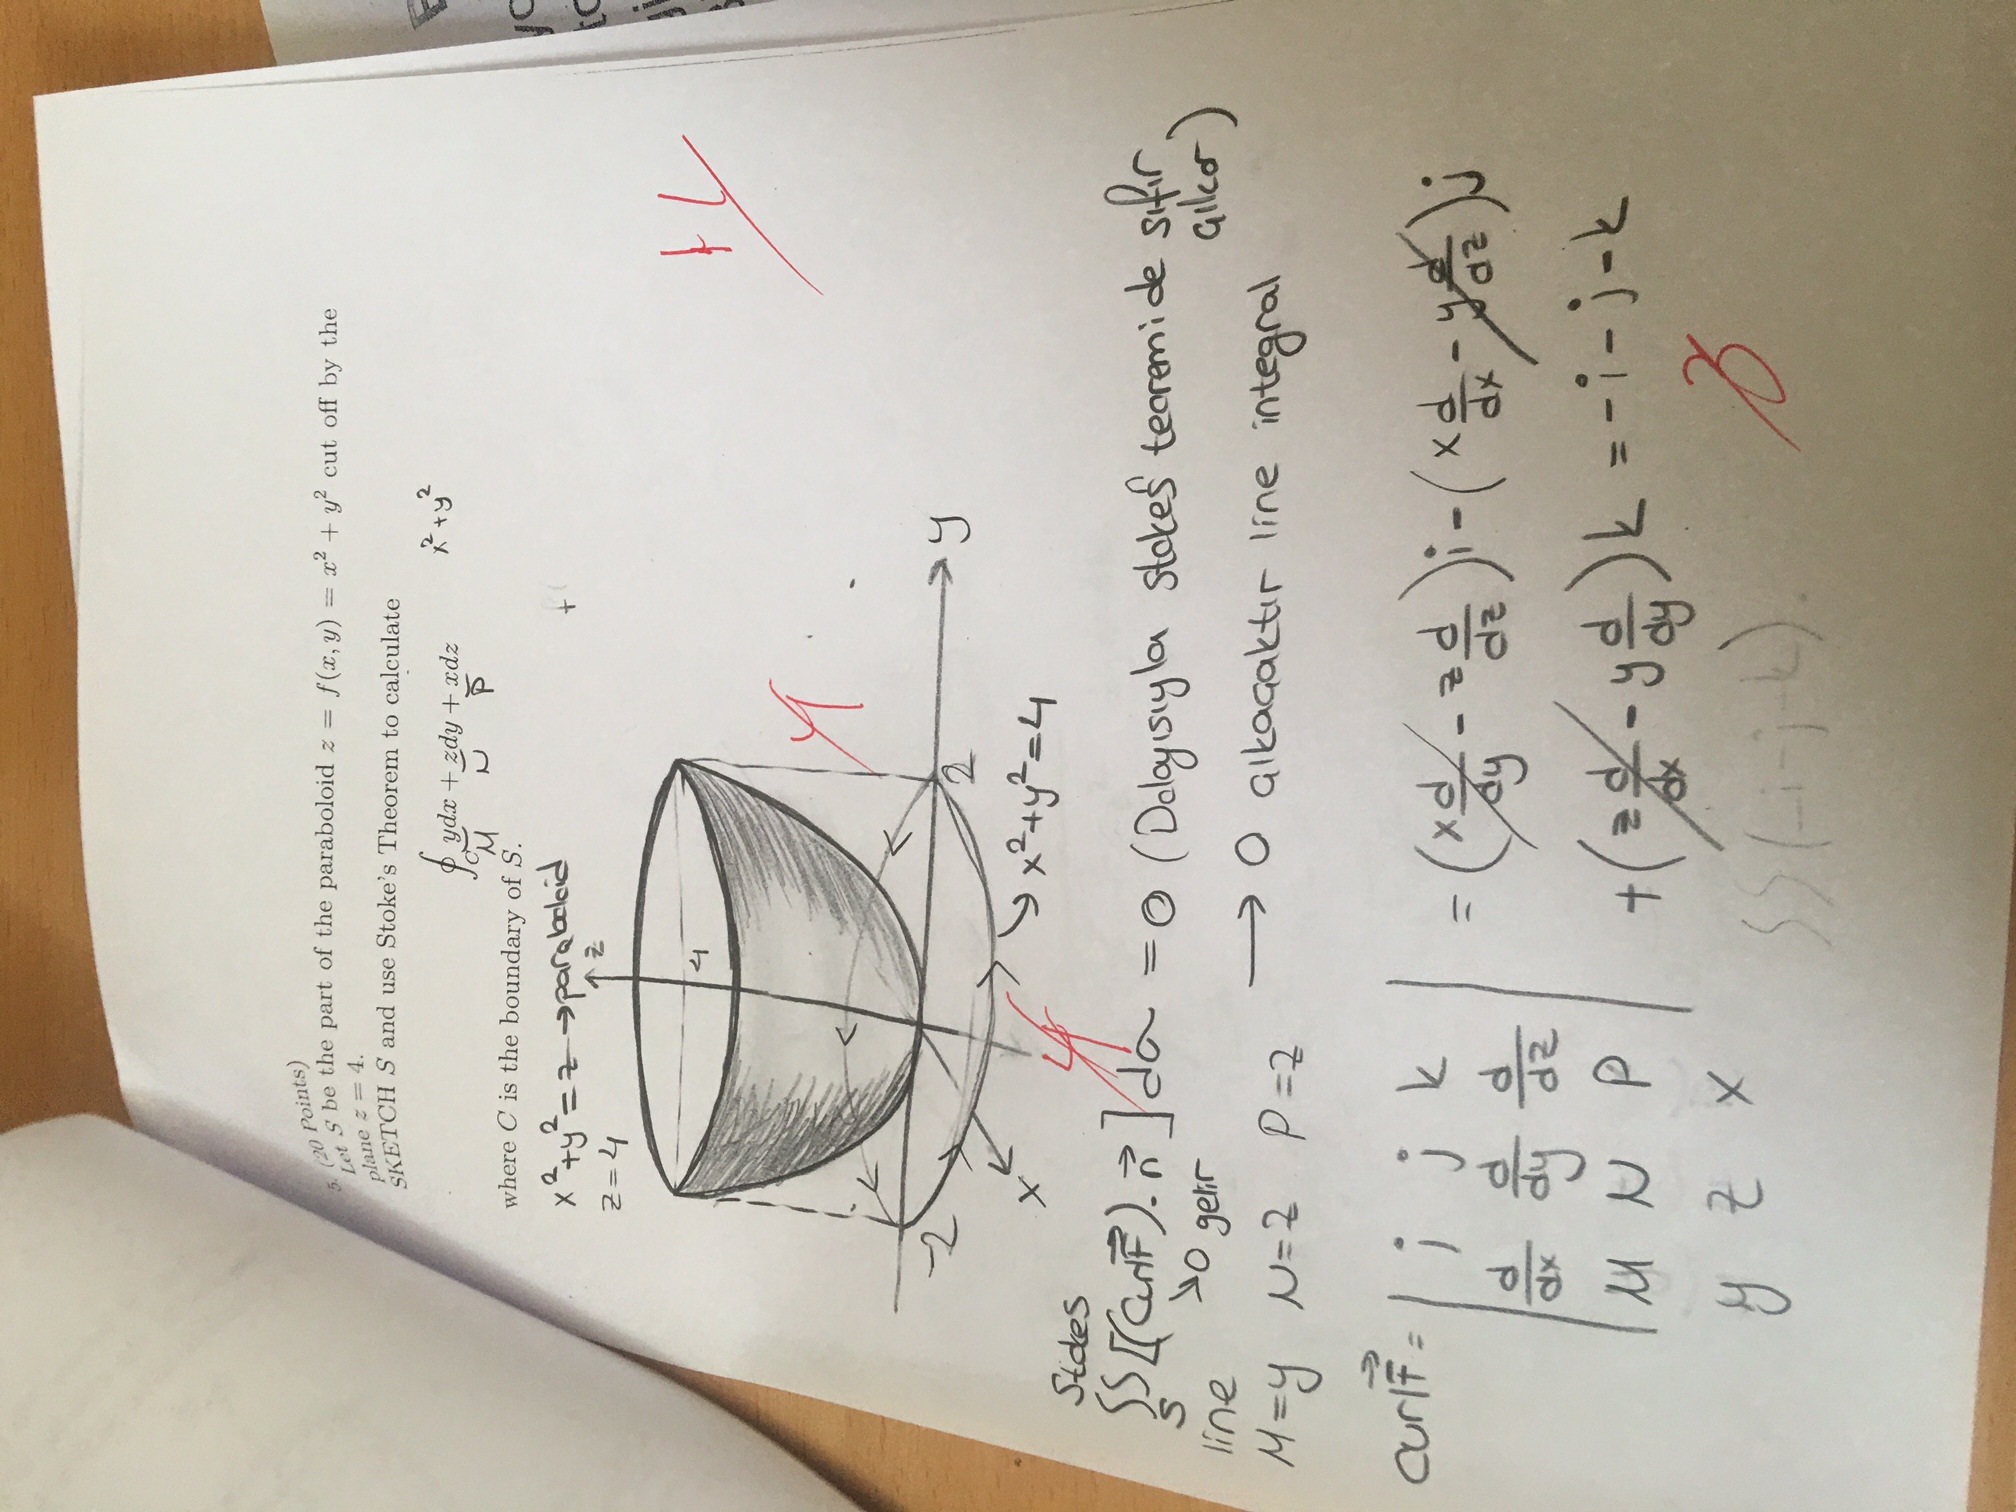 5. (20 Points)
Let S be the part of the paraboloid z = f(x, y) = x² + y² cut off by the
plane z = 4.
SKETCH S and use Stoke's Theorem to calculate
∮_C ydx + zdy + xdz
x² + y²
M N P
where C is the boundary of S.
x² + y² = z → paraboloid
z = 4
z
4
4
-2
2
y
x
x² + y² = 4
4
Stokes
∬_S [(Curl F⃗) . n⃗ ] da = 0 (Dolayısıyla stokes teoremide sıfır
→ 0 getir
çıkar)
line
M = y N = z P = z → 0 çıkacaktır line integral
curl F⃗ = | i j k | = (x d/dy - z d/dz) i - (x d/dx - y d/dz) j
d/dx d/dy d/dz
M N P + (z d/dx - y d/dy) k = -i - j - k
y z x
∬(-i-j-k).
3